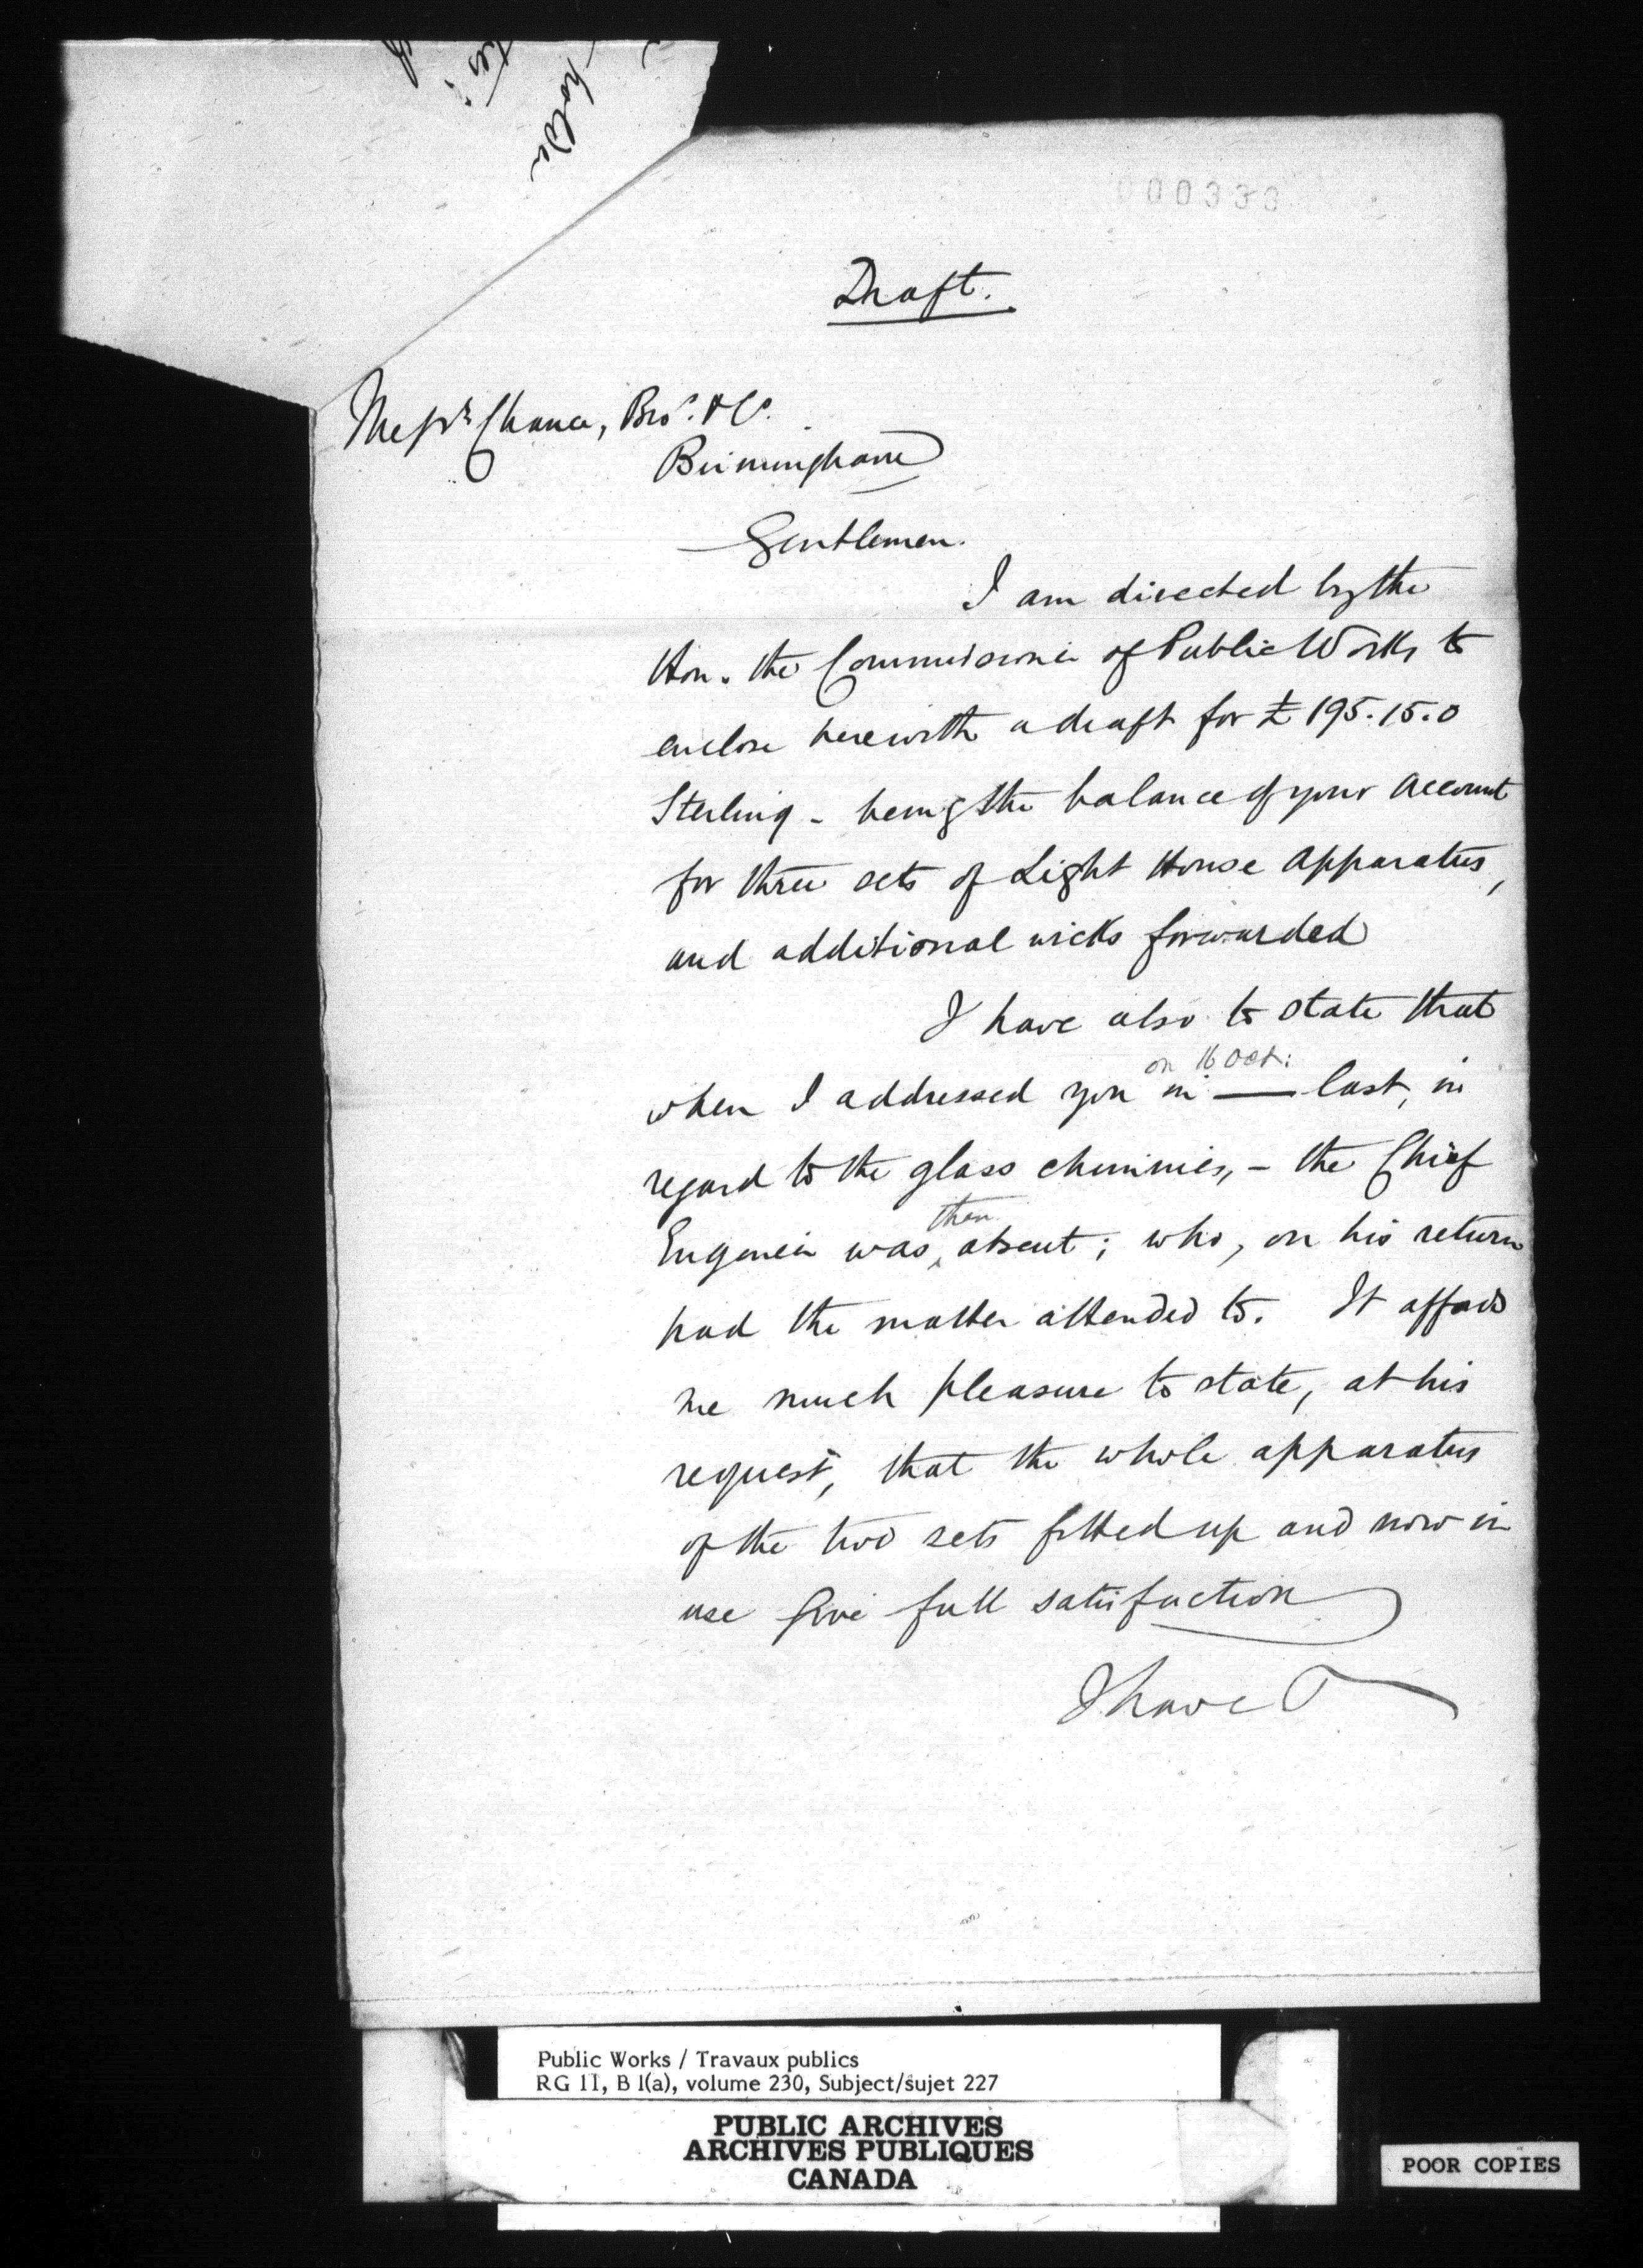 000333
Draft.
Messrs Chance, Bros. & Co.
Birmingham
Gentlemen.
I am directed by the
Hon. the Commissioner of Public Works to
enclose herewith a draft for £195.15.0
Sterling - being the balance of your Account
for three sets of Light House Apparatus,
and additional wicks forwarded
I have also to state that
on 16 Oct:
when I addressed you in — last, in
regard to the glass chimnies, - the Chief
then
Engineer was absent; who, on his return
had the matter attended to. It affords
me much pleasure to state, at his
request, that the whole apparatus
of the two sets fitted up and now in
use give full satisfaction
I have
Public Works / Travaux publics
RG 11, B 1(a), volume 230, Subject/sujet 227
PUBLIC ARCHIVES
ARCHIVES PUBLIQUES
CANADA
POOR COPIES